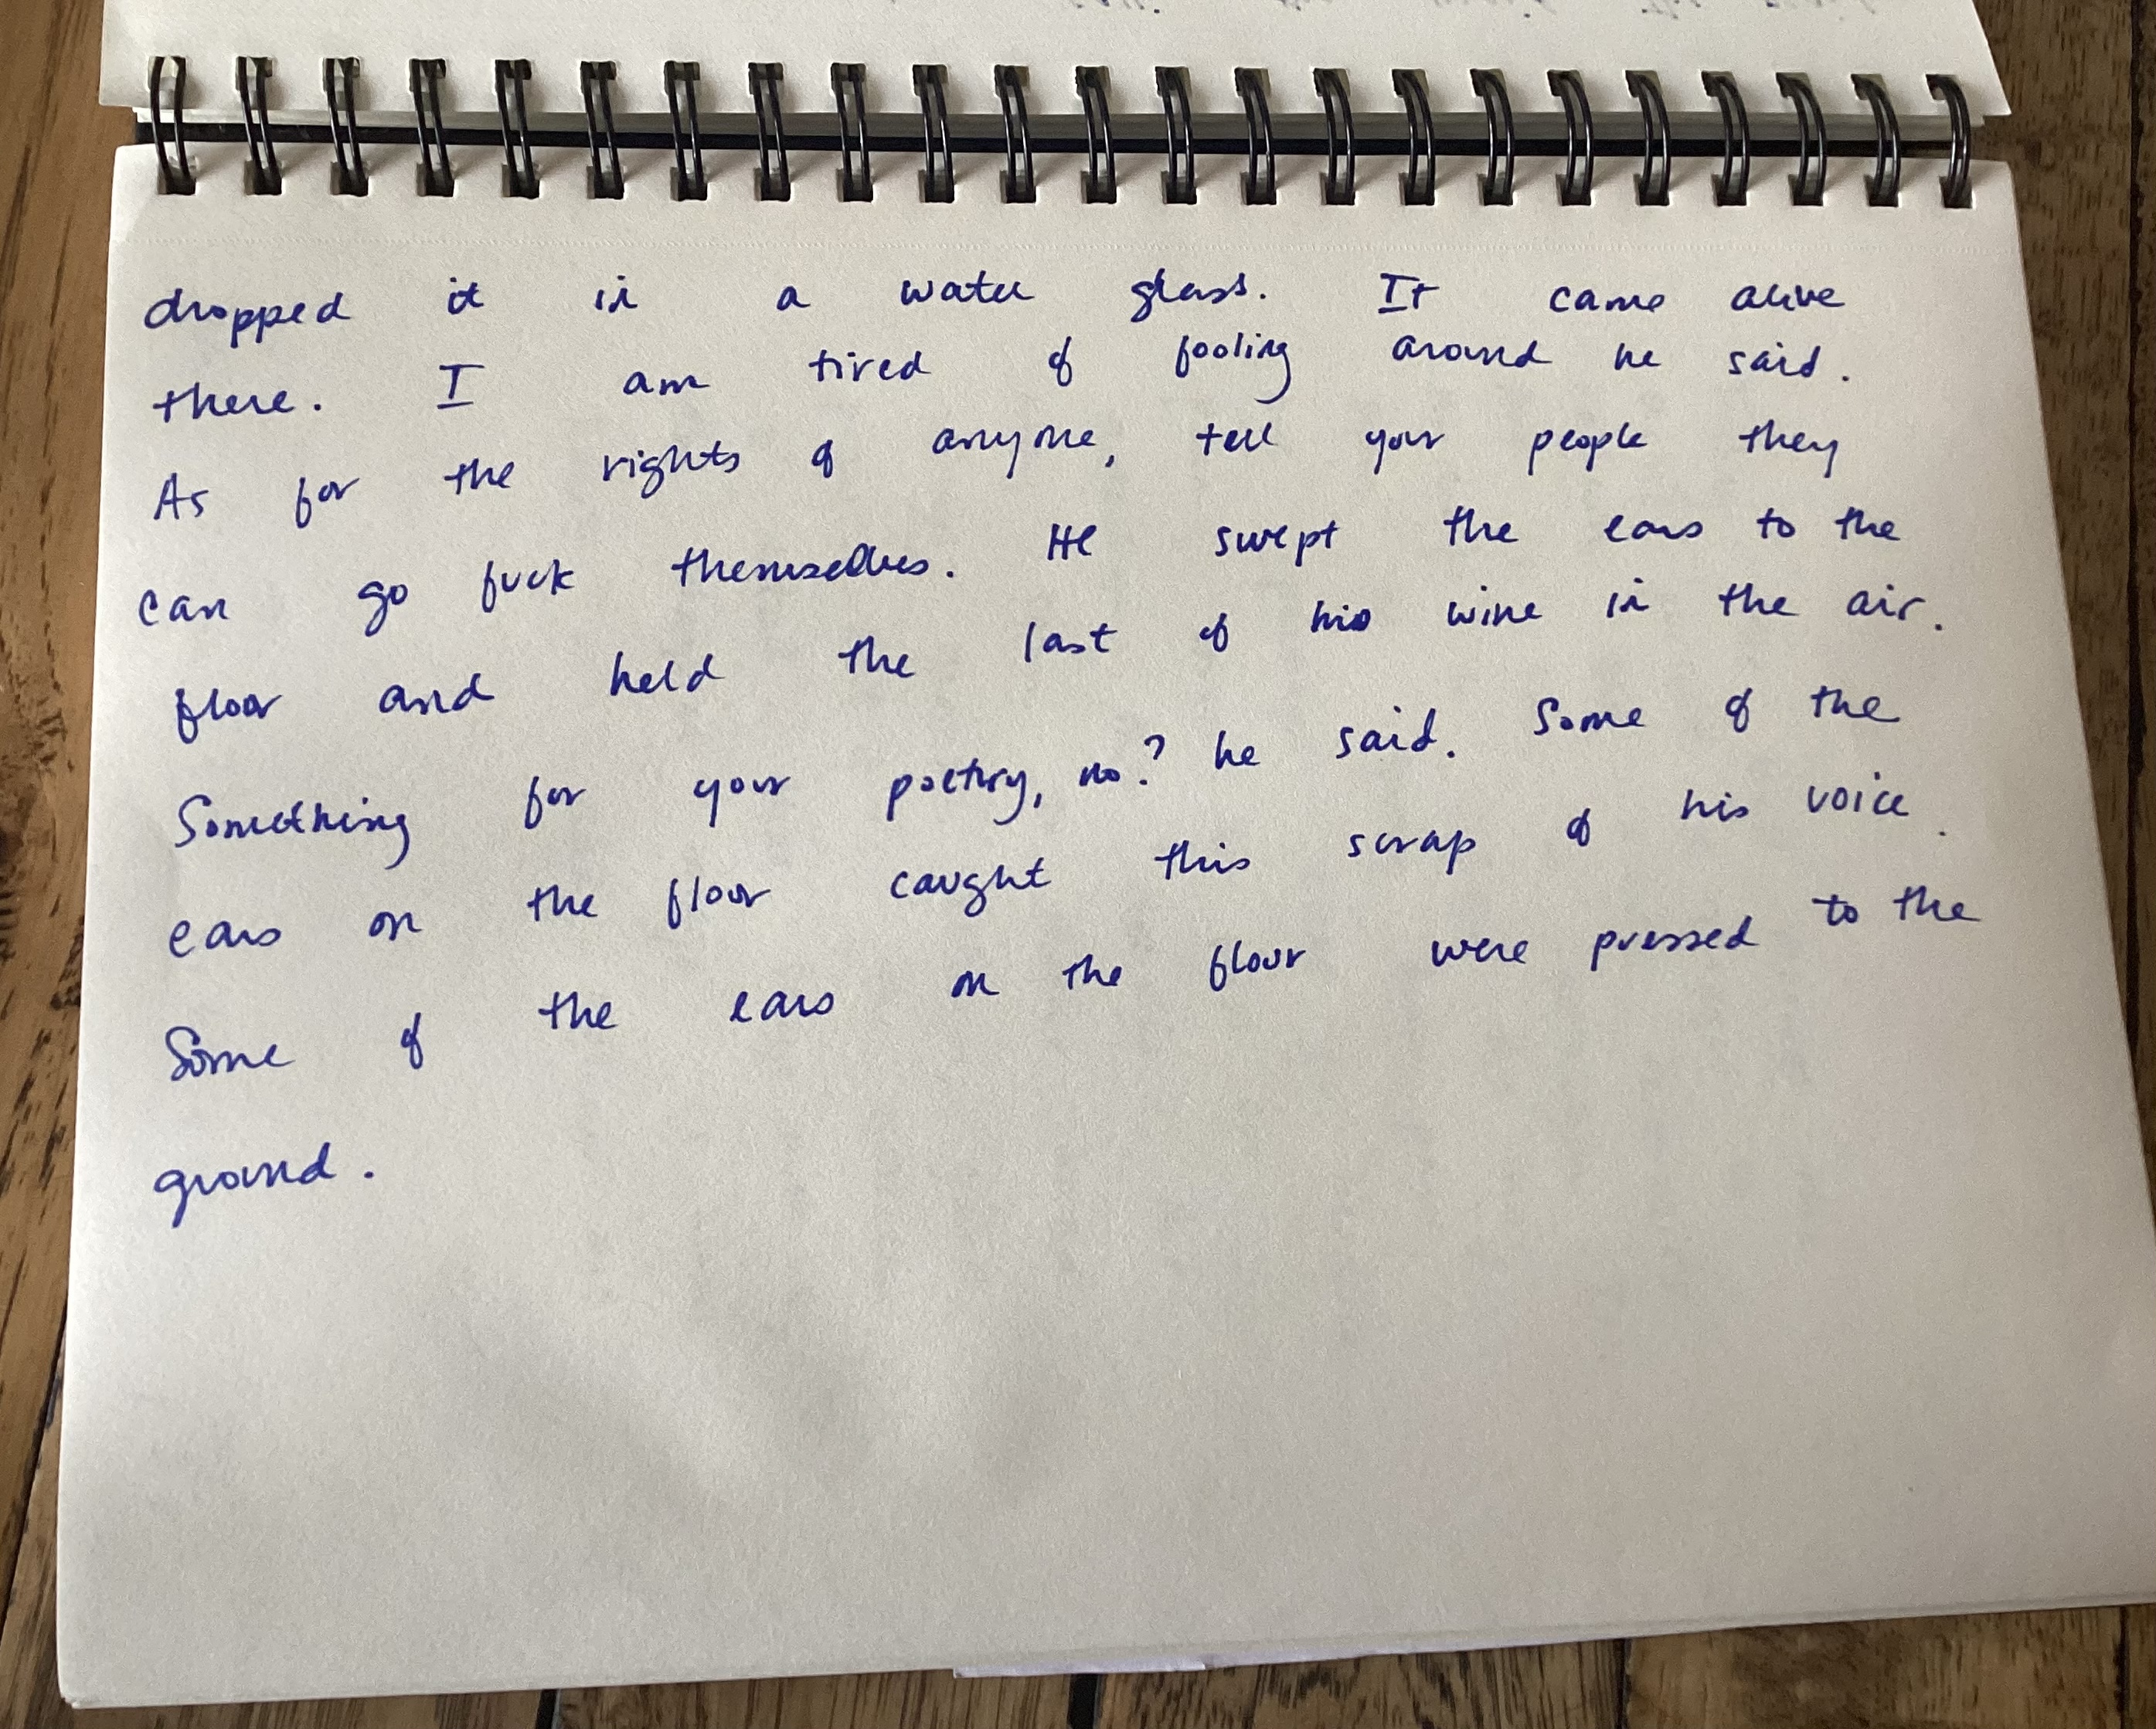 dropped it in a water glass. It came alive
there. I am tired of fooling around he said.
As for the rights of anyone, tell your people they
can go fuck themselves. He swept the ears to the
floor and held the last of his wine in the air.
Something for your poetry, no? he said. Some of the
ears on the floor caught this scrap of his voice.
Some of the ears on the floor were pressed to the
ground.